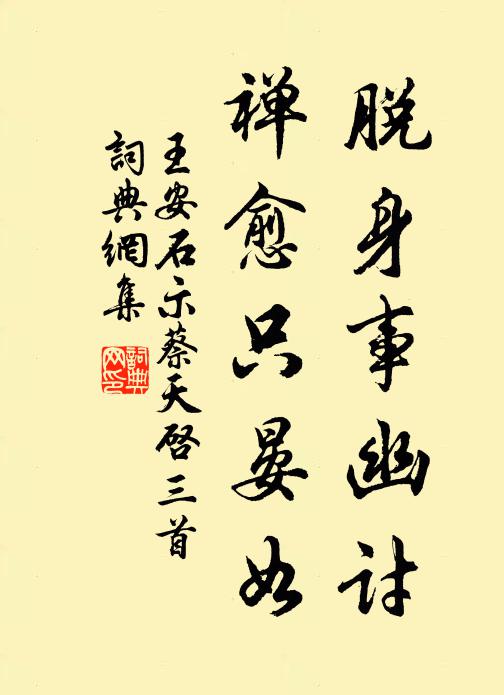 脱身事幽讨
禅愈只晏如
王安石示蔡天啓三首
詞典網集
詞典网印